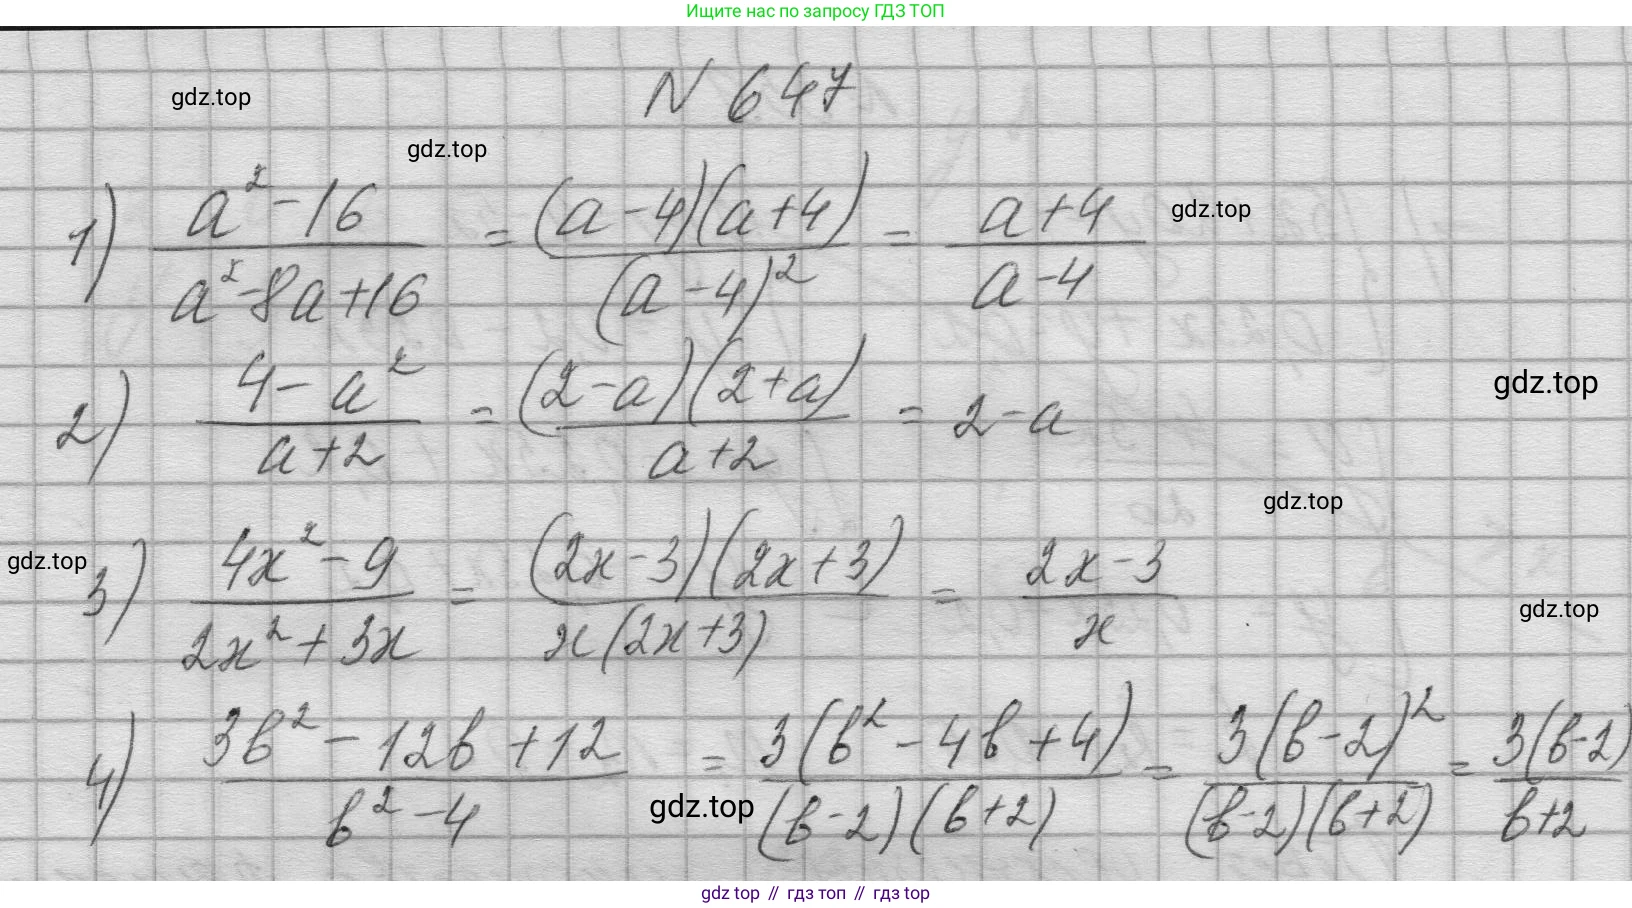 Ищите нас по запросу ГДЗ ТОП
N 647
gdz.top
gdz.top
1) (a² - 16)/(a² - 8a + 16) = ((a - 4)(a + 4))/((a - 4)²) = (a + 4)/(a - 4)
gdz.top
2) (4 - a²)/(a + 2) = ((2 - a)(2 + a))/(a + 2) = 2 - a
gdz.top
gdz.top
3) (4x² - 9)/(2x² + 3x) = ((2x - 3)(2x + 3))/(x(2x + 3)) = (2x - 3)/x
gdz.top
gdz.top
4) (3b² - 12b + 12)/(b² - 4) = (3(b² - 4b + 4))/((b - 2)(b + 2)) = (3(b - 2)²)/((b - 2)(b + 2)) = (3(b - 2))/(b + 2)
gdz.top
gdz top // гдз топ // гдз top